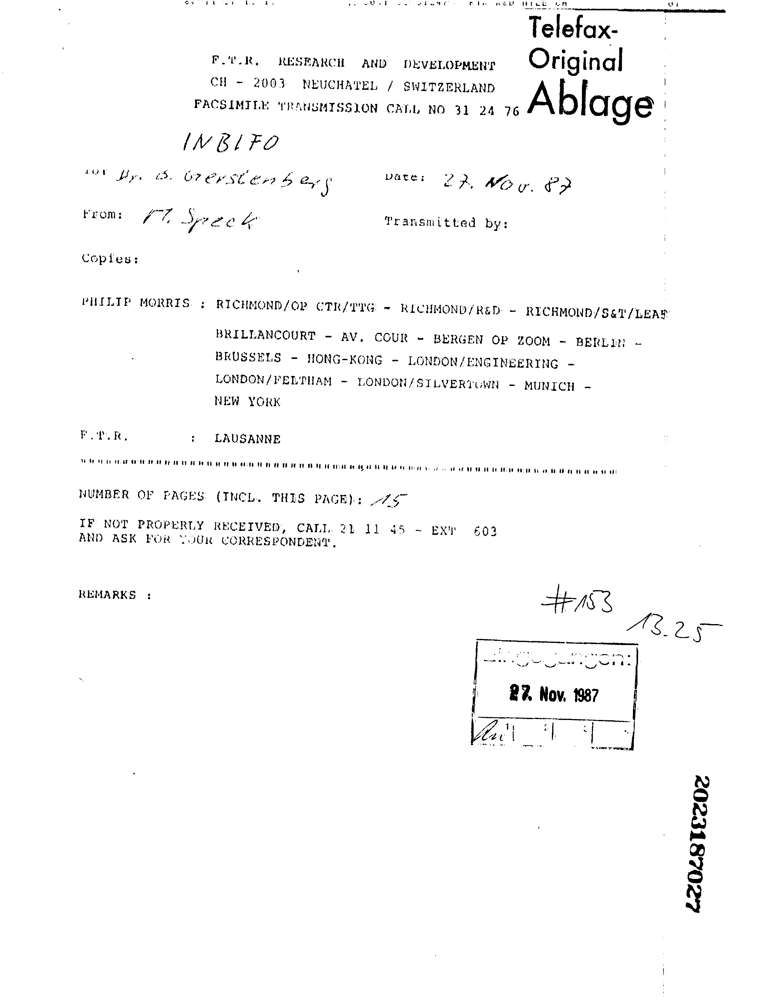 Telefax-
Original
Ablage
F.T.R. RESEARCH AND DEVELOPMENT
CH - 2003 NEUCHATEL / SWITZERLAND
FACSIMILE TRANSMISSION CALL NO 31 24 76
INBIFO
To: Dr. B. Gerstenberg
Date: 27. Nov. 87
From: M. Speck
Transmitted by:
Copies:
PHILIP MORRIS : RICHMOND/OP CTR/TTG - RICHMOND/R&D - RICHMOND/S&T/LEAF
BRILLANCOURT - AV. COUR - BERGEN OP ZOOM - BERLIN -
BRUSSELS - HONG-KONG - LONDON/ENGINEERING -
LONDON/FELTHAM - LONDON/SILVERTOWN - MUNICH -
NEW YORK
F.T.R. : LAUSANNE
NUMBER OF PAGES (INCL. THIS PAGE): 15
IF NOT PROPERLY RECEIVED, CALL 21 11 45 - EXT 603
AND ASK FOR YOUR CORRESPONDENT.
REMARKS :
#153
13.25
Eingegangen:
27. Nov. 1987
2023187027